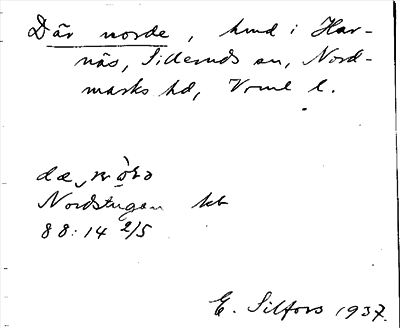 Där norde, hmd i Har-
näs, Silleruds sn, Nord-
marks hd, Vrml l.
Nordstugan kb
88:14 2/5
E. Silfors 1937.